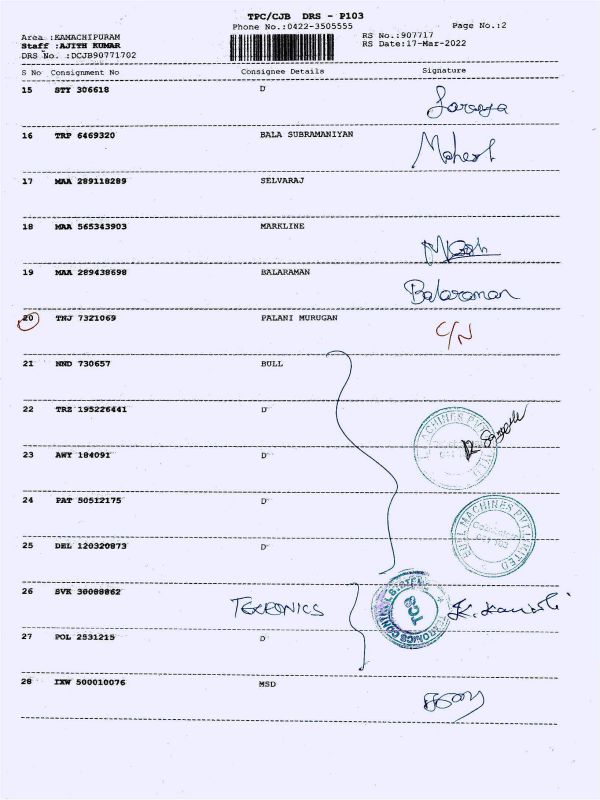 TPC/CJB DRS - P103
Phone No.:0422-3505555
Page No.:2
Area :KAMACHIPURAM
RS No.:907717
Staff :AJITH KUMAR
RS Date:17-Mar-2022
DRS No. :DCJB90771702
S No Consignment No Consignee Details Signature
15 STY 306618 D
16 TRP 6469320 BALA SUBRAMANIYAN
Mahesh
17 MAA 289118289 SELVARAJ
18 MAA 565343903 MARKLINE
19 MAA 289438698 BALARAMAN
Balaraman
20 TNJ 7321069 PALANI MURUGAN
C/N
21 NND 730657 BULL
22 TRZ 195226441 D
23 AWY 184091 D
24 PAT 50512175 D
BULL MACHINES PVT LIMITED
25 DEL 120320873 D
26 SVK 30088862
TEKRONICS
TCS
27 POL 2531215 D
28 IXW 500010076 MSD